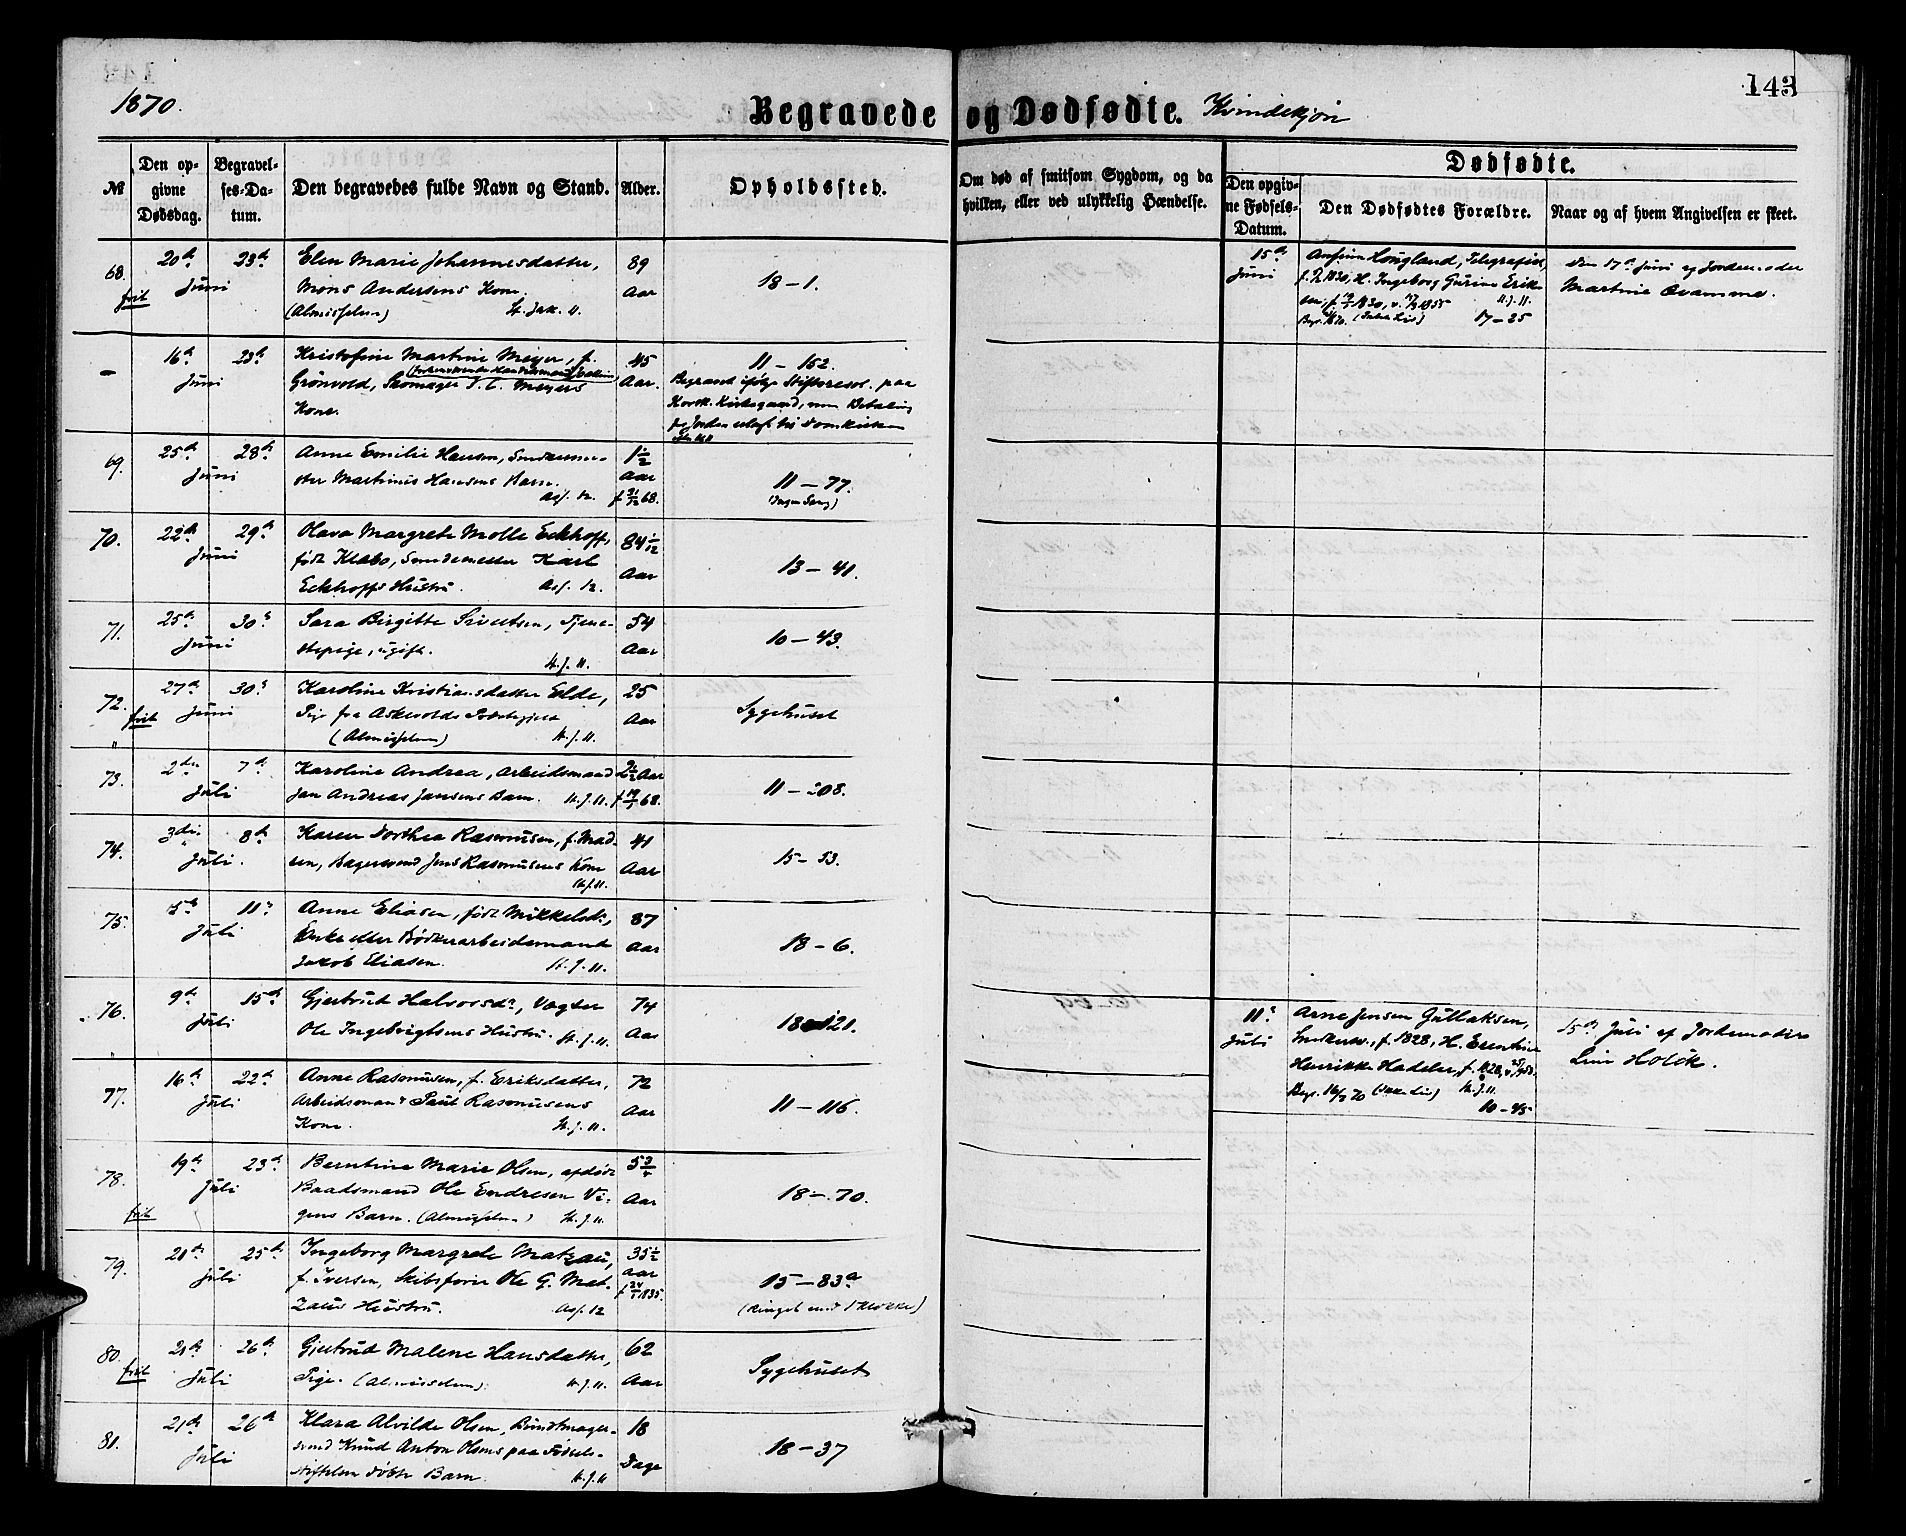 143
1870.
Begravede og Dødfødte. Kvindekjøn
№
Den opgivne Dødsdag.
Begravelses-Datum.
Den begravedes fulde Navn og Stand.
Alder.
Opholdssted.
Om død af smitsom Sygdom, og da hvilken, eller ved ulykkelig Hændelse.
Dødfødte.
Den opgivne Fødsels-Datum.
Den Dødfødtes Forældre.
Naar og af hvem Angivelsen er skeet.
68. frit 20de 23de Juni
Elen Marie Johannesdatter,
Mons Andersens Kone.
(Almisselem) St. Jak. 11.
89 Aar
18 – 1.
15de Juni
Ansteen Hougland, Telegrafist,
1830, H. Ingeborg Gurine Erik-
sen, 1830, 1855 St. J. 11.
17 – 25
Den 17de Juni af Jordemoder
Martine Tvamme.
– 16de 23de Juni
Kristofine Martine Meyer, f.
Grönvold, Skomager J. C. Meyers
Kone.
45 Aar.
11 – 152.
Begravet ifølge Stiftsresol. paa
Korsk. Kirkegaard, men Betaling
for Jorden erlagt til Domkirken
69. 25de 28de Juni
Anne Emilie Hansen, Snedkerme-
ster Martinus Hansens Barn.
Asf. 12.
1½ Aar
68.
11 – 77.
(Ingen Sang)
70. 22de 29de Juni
Olava Margrete Molle Eckhoff,
født Klabo, Karl
Eckhoffs Hustru. Asf. 12.
84 1/12 Aar
13 – 41.
71. 25de 30te Juni
Sara Birgitte Sivertsen, Tjene-
stepige, ugift. St. J. 11.
54 Aar
10 – 43.
72. frit 27de 30te Juni
Karoline Kristiansdatter Elde,
Pige fra Askevolds Præstegjeld
(Almisselem) St. J. 11.
25 Aar
Sygehuset
73. 2den 7de Juli
Karoline Andrea, Arbeidsmand
Jan Andreas Jansens Barn. St. J. 11.
2½ Aar
68.
11 – 208.
74. 3die 8de Juli.
Karen Dorthea Rasmusen, f. Mad-
sen, Bagersvend Jens Rasmusens Kone
St. J. 11.
41 Aar
15 – 53.
75. 5te 11te Juli
Anne Eliasen, født Mikkelsdr,
Enke efter Bødkerarbeidsmand
Jakob Eliasen. St. J. 11.
87 Aar
18 – 6.
76. 9de 15de Juli
Gjertrud Halvorsdr, Vægter
Ole Ingebrigtsens Hustru. St. J. 11.
74 Aar
18 – 121.
11te Juli
Arne Jensen Gullaksen,
Snedkersv., f. 1828, H. Erentine
Henrikke Hadeler, f. 1828,
Begr. 16/7 70 St. J. 11.
10 – 45
15de Juli af Jordemoder
Line Holck.
77. 16de 22de Juli
Anne Rasmusen, f. Eriksdatter,
Arbeidsmand Paul Rasmusens
Kone. St. J. 11.
72 Aar
11 – 116.
78. frit 19de 23de Juli
Berntine Marie Olsen, afdøde
Baadsmand Ole Endresen Vi-
gens Barn. (Almisselem) St. J. 11.
5¾ Aar
18 – 70.
79. 20de 25de Juli
Ingeborg Margrete Matzau,
f. Iversen, Skibsfører Ole G. Mat-
zaus Hustru. Asf. 12
35½ Aar
1835.
15 – 83a
(Ringet med 1 Klokke)
80. frit 21de 26de Juli
Gjertrud Malene Hansdatter,
Pige. (Almisselem) St. J. 11.
62 Aar
Sygehuset
81. 21de 26de Juli
Klara Alvilde Olsen, Buntmager-
svend Knud Anton Olsens paa Fødsels-
stiftelsen døbte Barn. St. J. 11
18 Dage
18 – 37